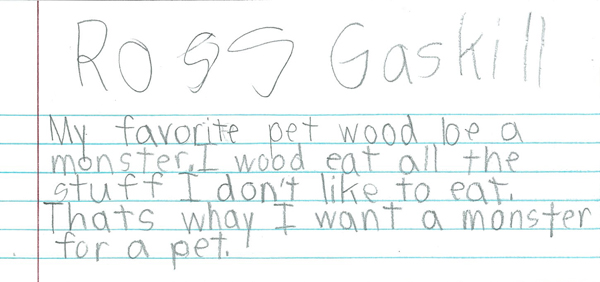 Ross Gaskill
My favorite pet wood be a
monster. I wood eat all the
stuff I don't like to eat.
Thats whay I want a monster
for a pet.